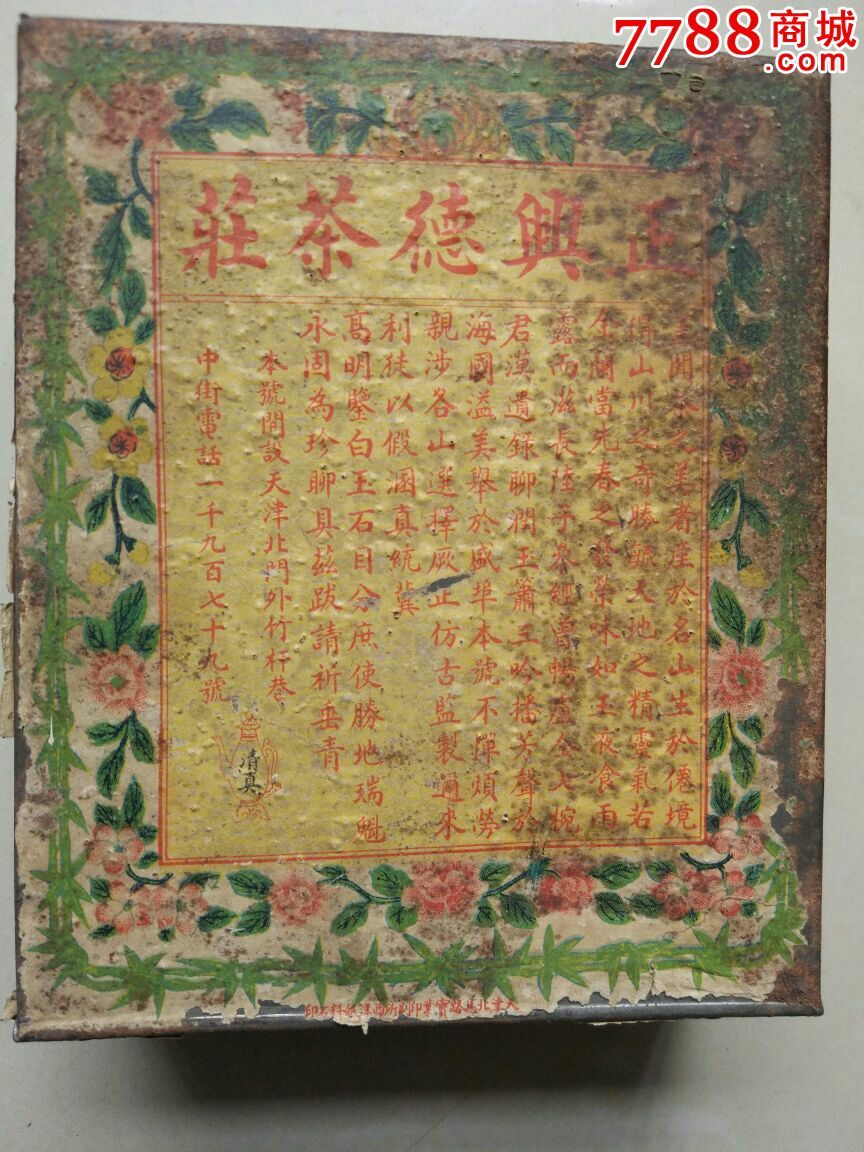 7788商城
.com
正興德茶莊
蓋聞茶之美者產於名山生於僊境
得山川之奇勝毓天地之精靈氣若
金蘭當先春之發榮味如玉液食雨
露而滋長陸子茶經曾暢盧仝七椀
君漠遺錄聊潤王蕭三吟播芳聲於
海國溢美舉於盛埠本號不憚煩勞
親涉各山選擇厥正仿古監製通來
利徒以假溷真統冀
高明鑒白玉石目分庶使勝地瑞魁
永固為珍聊具茲跋請祈垂青
本號開設天津北門外竹杆巷
中街電話一千九百七十九號
清真
天津北馬路寶業印刷所西洋紙料石印